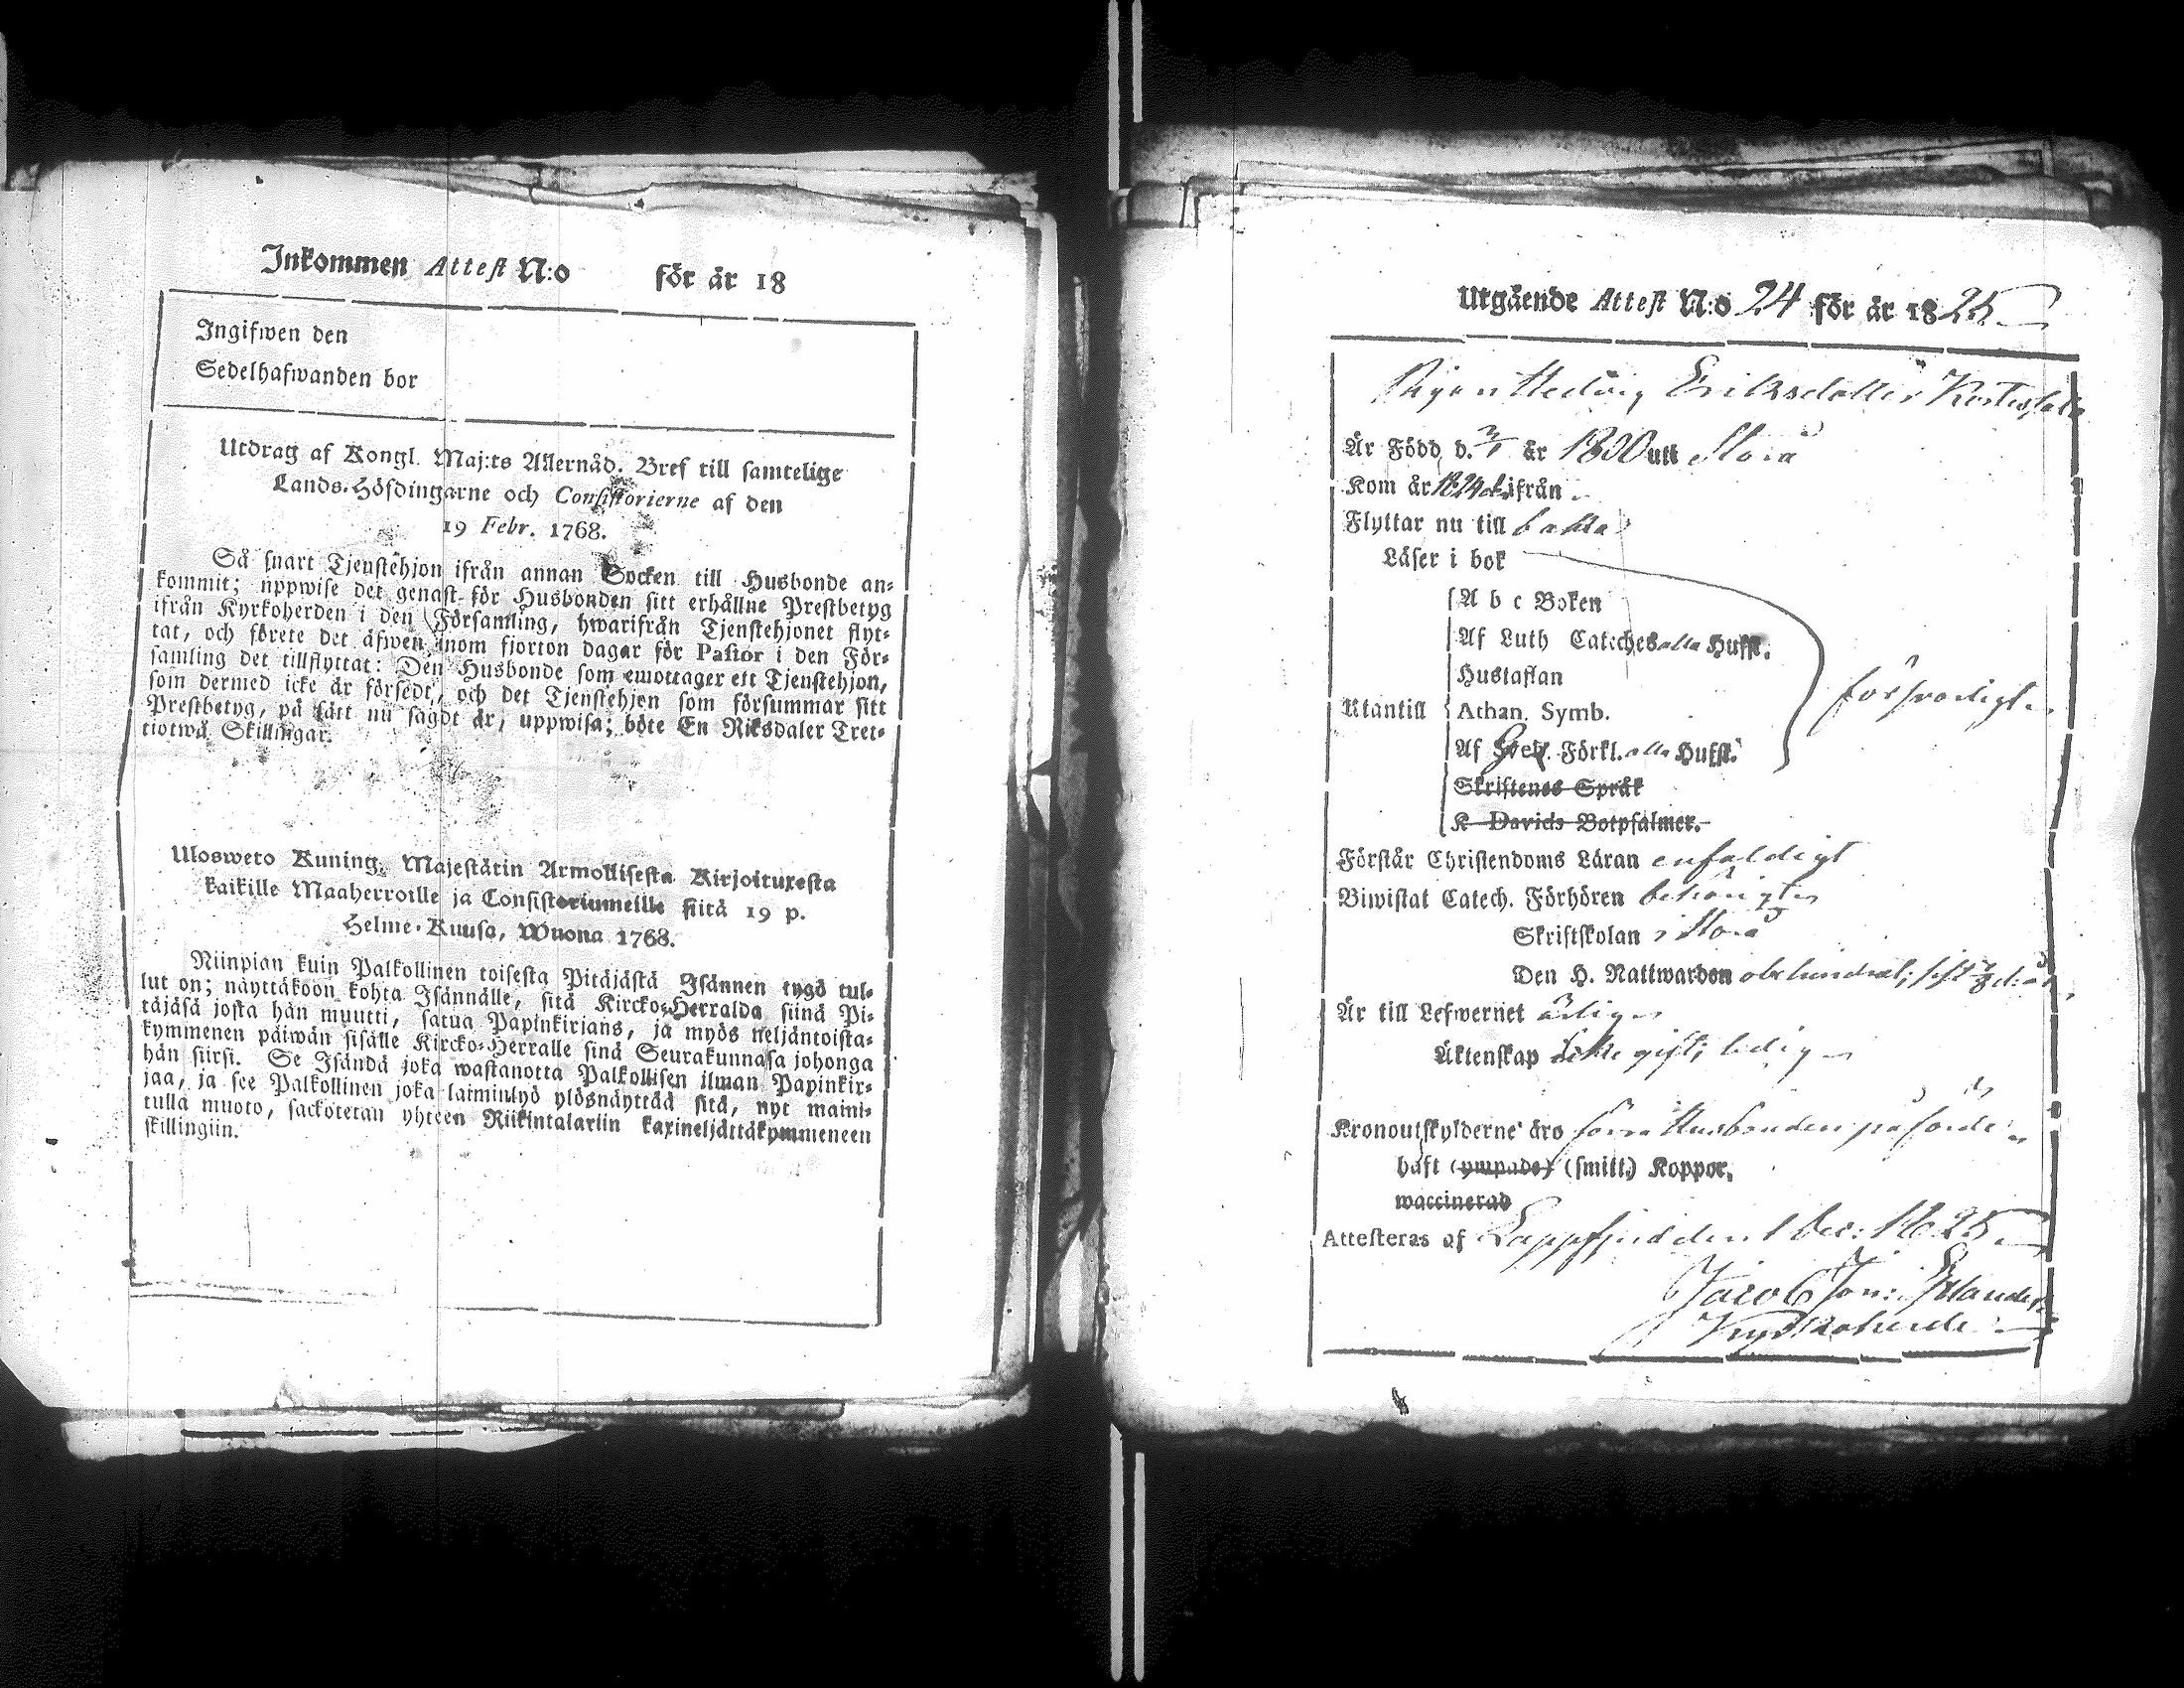 Inkommen Attest N:o för år 18
Ingifwen den
Sedelhafwanden bor
Utdrag af Kongl. Maj:ts Allernåd. Bref till samtelige
Lands-Höfdingarne och Consistorierne af den
19 Febr. 1768.
Så snart Tjenstehjon ifrån annan Socken till Husbonde an-
kommit; uppwise det genast för Husbonden sitt erhållne Prestbetyg
ifrån Kyrkoherden i den Församling, hwarifrån Tjenstehjonet flyt-
tat, och förete det äfwen inom fjorton dagar för Pastor i den För-
samling det tillflyttat: Den Husbonde som emottager ett Tjenstehjon,
som dermed icke är försedt, och det Tjenstehjon som försummar sitt
Prestbetyg, på sätt nu sagdt är, uppwisa; böte En Riksdaler Tret-
tiotwå Skillingar.
Ulosweto Kuning. Majestätin Armollisesta Kirjoituxesta
kaikille Maaherroille ja Consistoriumeille siitä 19 p.
Helme-Kuusa, Wuona 1768.
Niinpian kuin Palkollinen toisesta Pitäjästä Isännen tygö tul-
lut on; näyttäköön kohta Isännälle, sitä Kircko-Herralda siinä Pi-
täjäsä josta hän muutti, satua Papinkirjans, ja myös neljäntoista-
kymmenen päiwän sisälle Kircko-Herralle sinä Seurakunnasa johonga
hän siirsi. Se Isändä joka wastanotta Palkollisen ilman Papinkir-
jaa, ja see Palkollinen joka laiminlyö ylösnäyttää sitä, nyt maini-
tulla muoto, sackotetan yhteen Riikintalariin kaxineljättäkymmeneen
skillingiin.
Utgående Attest N:o 24 för år 1825
Pigan Hedvig Eriksdotter
Är Född d. år 1800 uti Storå
Kom år 1824 ifrån
Flyttar nu till
Läser i bok
A b c Boken
Af Luth Cateches alla Hufst.
Hustaflan
Utantill Athan. Symb. försvarligt
Af Förkl. alla Hufst.
Skriftenes Språk
K Davids Botpsalmer.
Förstår Christendoms Läran enfaldigt
Biwistat Catech. Förhören behörigt
Skriftskolan i Storå
Den H. Nattwarden obehindrad; sist
Är till Lefwernet ärlig
Äktenskap icke gift; ledig
Kronoutskylderne äro förra Husbonden påförde
haft (ympade) (smitt.) Koppor.
waccinerad
Attesteras af Lappfjerd den 1 Dec: 1825
Jacob Jon:
Kyrkoherde